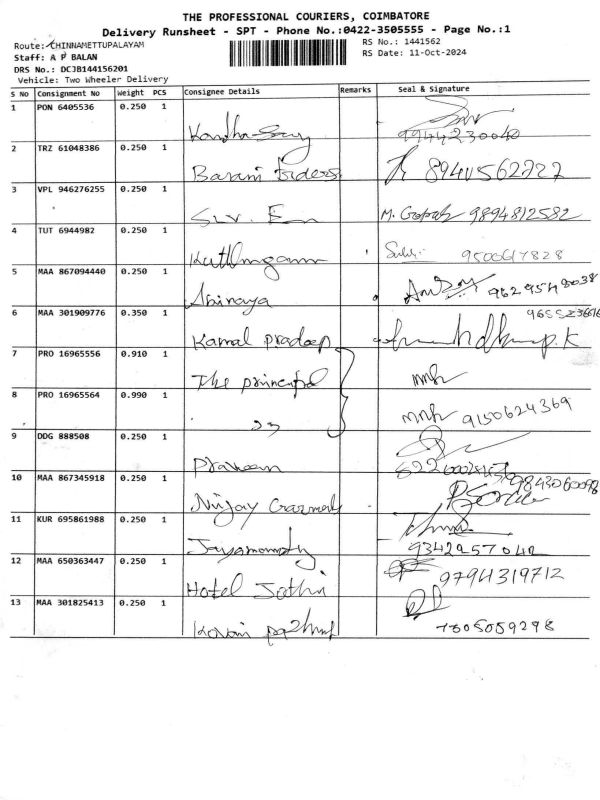 THE PROFESSIONAL COURIERS, COIMBATORE
Delivery Runsheet - SPT - Phone No.:0422-3505555 - Page No.:1
Route: CHINNAMETTUPALAYAM
RS No.: 1441562
Staff: A P BALAN
RS Date: 11-Oct-2024
DRS No.: DCJB144156201
Vehicle: Two Wheeler Delivery
S No Consignment No Weight PCS Consignee Details Remarks Seal & Signature
1 PON 6405536 0.250 1 9944230040
2 TRZ 61048386 0.250 1 Barani 8940562727
3 VPL 946276255 0.250 1 M. Gopal 9894812582
4 TUT 6944982 0.250 1 9500617828
5 MAA 867094440 0.250 1 Abinaya
6 MAA 301909776 0.350 1 Kamal Pradeep
7 PRO 16965556 0.910 1 The principal
8 PRO 16965564 0.990 1 ,, 9150624369
9 DDG 888508 0.250 1 Praveen
10 MAA 867345918 0.250 1 9843060098
11 KUR 695861988 0.250 1 Jayamoorthy 9342957042
12 MAA 650363447 0.250 1 Hotel 9794319712
13 MAA 301825413 0.250 1 Kovai